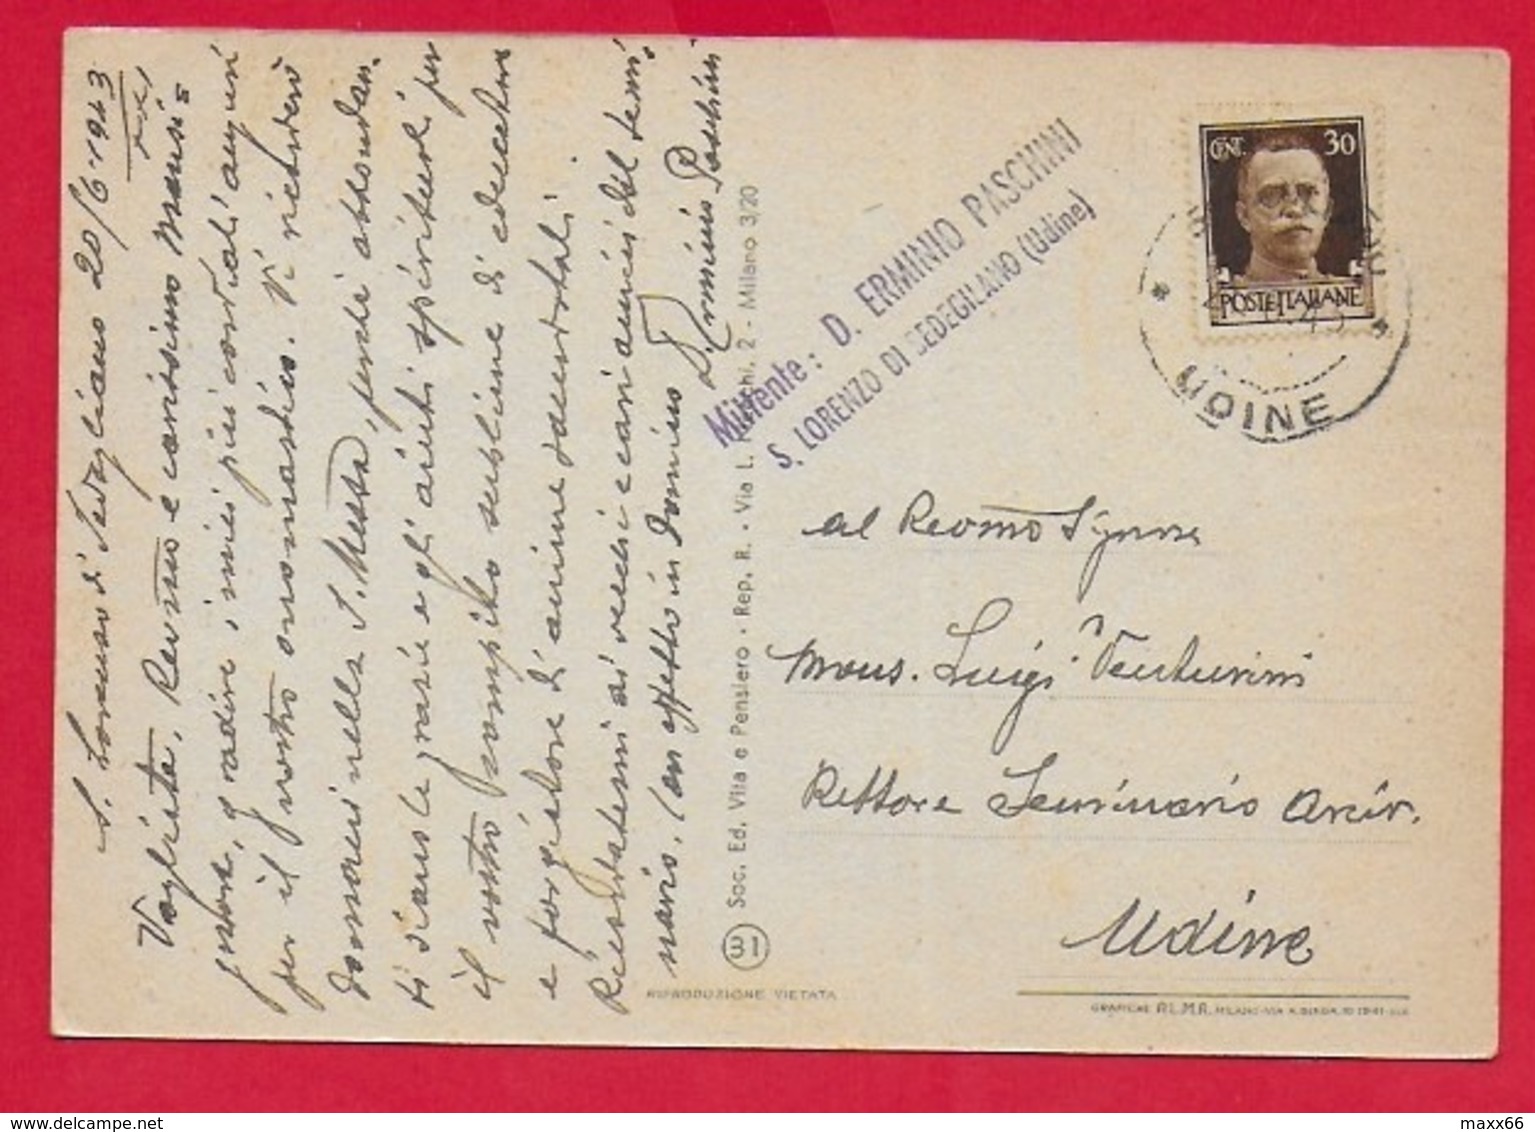 S. Lorenzo di Sedegliano 20/6-1943
XXI
Voglia, Revmo e carissimo Monsi=
gnore, gradire i miei più cordiali auguri
per il vostro onomastico. Vi ricorderò
domani nella S. Messa, perché abbondan-
ti siano le grazie e gli aiuti spirituali per
il vostro compito sublime di educatore
e forgiatore di anime sacerdotali.
Ricordatemi ai vecchi e cari amici del semi-
nario. Con affetto in Domino
D. Erminio Paschini
31 Soc. Ed. Vita e Pensiero - Rep. R. - Via L. 2 - Milano 3/20
RIPRODUZIONE VIETATA
Mittente: D. ERMINIO PASCHINI
S. LORENZO DI SEDEGLIANO (Udine)
CENT. 30
POSTE ITALIANE
UDINE
Al Revmo Signore
Mons. Luigi Venturini
Rettore Seminario Arciv.
Udine
GRAFICHE AL.M.A. MILANO
delcampe.net
maxx66